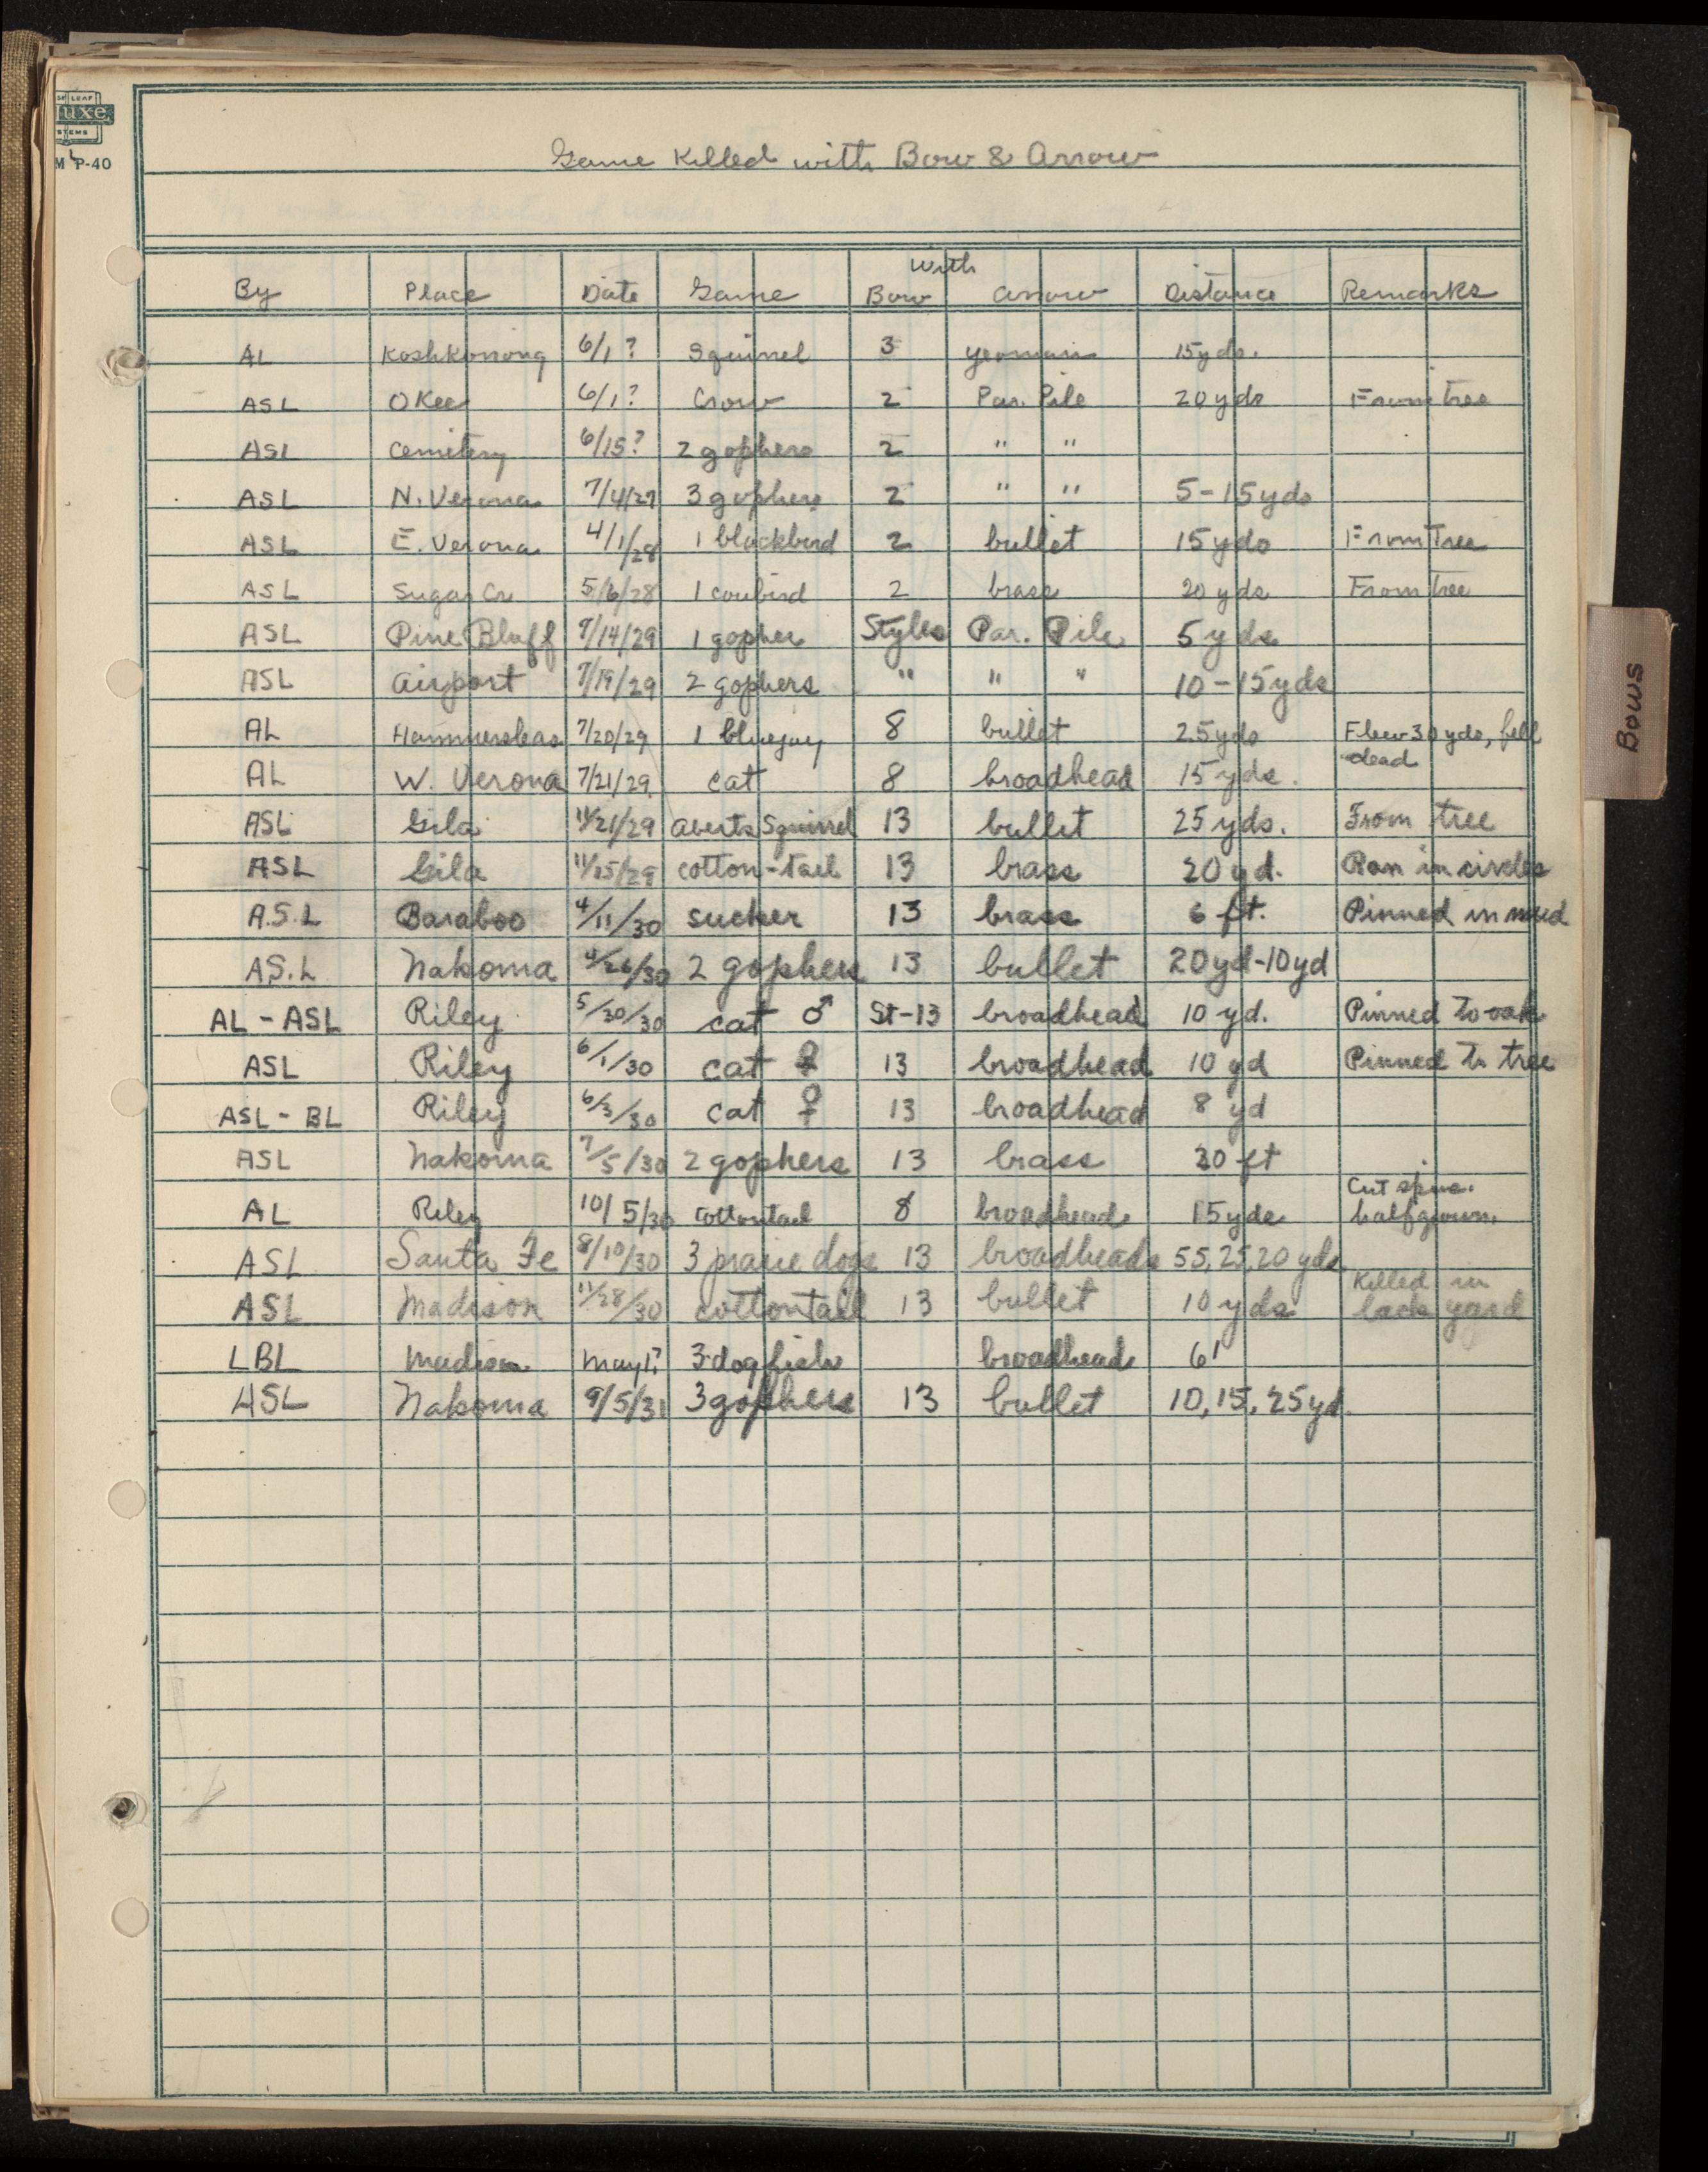 SE LEAF
uxe
STEMS
M P-40
Game Killed with Bow & Arrow
With
By Place Date Game Bow Arrow Distance Remarks
AL Koshkonong 6/1? Squirrel 3 yeoman 15 yds.
ASL OKee 6/1? Crow 2 Par. Pile 20 yds From tree
ASL Cemetery 6/15? 2 gophers 2 " "
ASL N. Verona 7/4/27 3 gophers 2 " " 5-15 yds
ASL E. Verona 4/1/28 1 blackbird 2 bullet 15 yds From Tree
ASL Sugar Cr 5/6/28 1 cowbird 2 brass 20 yds From tree
ASL Pine Bluff 7/14/29 1 gopher Styles Par. Pile 5 yds
ASL Airport 7/19/29 2 gophers " " " 10-15 yds
AL 7/20/29 1 bluejay 8 bullet 25 yds Flew 30 yds, fell
dead
AL W. Verona 7/21/29 cat 8 broadhead 15 yds.
ASL Gila 11/21/29 Aberts Squirrel 13 bullet 25 yds. From tree
ASL Gila 11/25/29 cotton-tail 13 brass 20 yd. Ran in circles
A.S.L Baraboo 4/11/30 sucker 13 brass 6 ft. Pinned in mud
AS.L Nakoma 4/26/30 2 gophers 13 bullet 20 yd-10 yd
AL - ASL Riley 5/30/30 cat ♂ St-13 broadhead 10 yd. Pinned to oak
ASL Riley 6/1/30 cat ♀ 13 broadhead 10 yd Pinned to tree
ASL - BL Riley 6/3/30 cat ♀ 13 broadhead 8 yd
ASL Nakoma 7/5/30 2 gophers 13 brass 30 ft
Cut spine.
AL Riley 10/5/30 cottontail 8 broadhead 15 yds halfgrown.
ASL Santa Fe 8/10/30 3 praire dogs 13 broadheads 55, 25, 20 yds.
Killed in
ASL Madison 11/28/30 cottontail 13 bullet 10 yds back yard
LBL Madison May 1? 3 dogfish broadhead 6'
ASL Nakoma 9/5/31 3 gophers 13 bullet 10, 15, 25 yd.
Bows